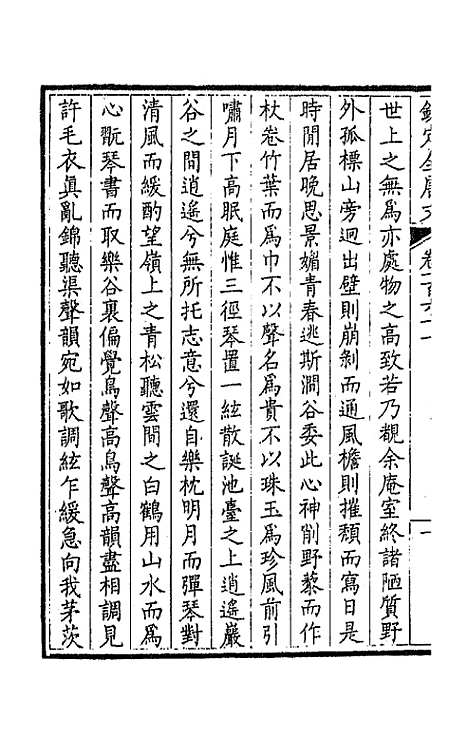 欽定全唐文 卷一百六十一 一
世上之無為亦處物之高致若乃覩余庵室終諸陋質野
外孤標山旁迥出壁則崩剝而通風檐則摧頹而寫日是
時閒居晚思景媚青春逃斯澗谷委此心神削野藜而作
杖卷竹葉而為巾不以聲名為貴不以珠玉為珍風前引
嘯月下高眠庭惟三徑琴置一絃散誕池臺之上逍遙巖
谷之間逍遙兮無所托志意兮還自樂枕明月而彈琴對
清風而緩酌望嶺上之青松聽雲間之白鶴用山水而為
心翫琴書而取樂谷裏偏覺鳥聲高鳥聲高韻盡相調見
許毛衣真亂錦聽渠聲韻宛如歌調絃乍緩急向我茅茨